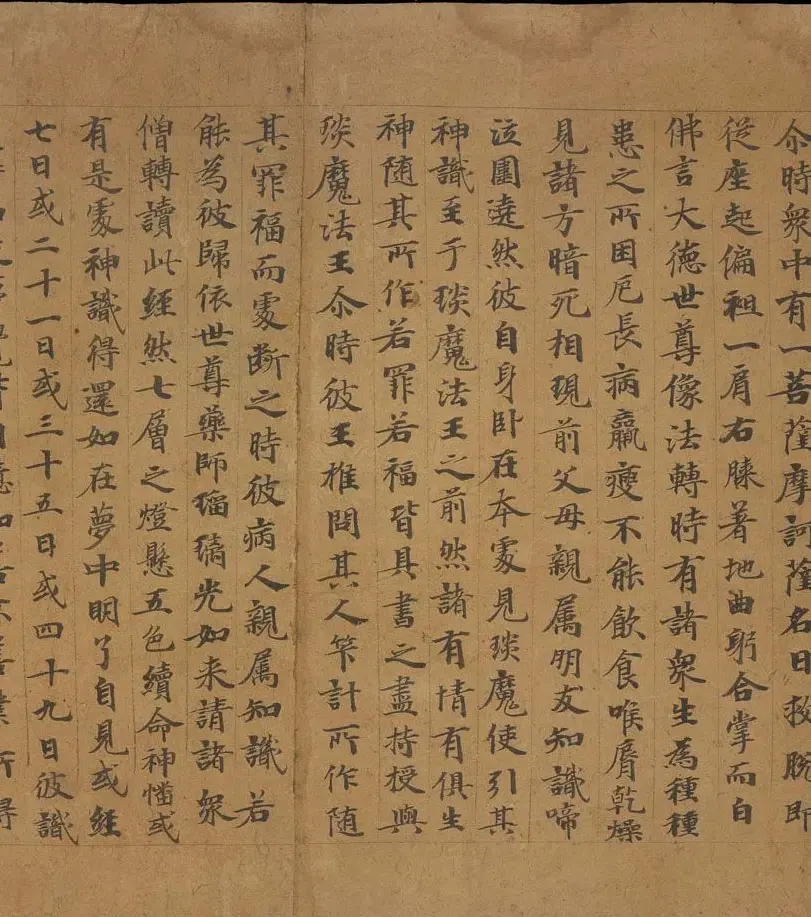 尒時衆中有一菩薩摩訶薩名曰救脫即
從座起偏袒一肩右膝著地曲躬合掌而白
佛言大德世尊像法轉時有諸衆生為種種
患之所困厄長病羸瘦不能飲食喉脣乾燥
見諸方暗死相現前父母親属朋友知識啼
泣圍遶然彼自身卧在本處見琰魔使引其
神識至于琰魔法王之前然諸有情有俱生
神隨其所作若罪若福皆具書之盡持授與
琰魔法王尒時彼王推問其人筭計所作隨
其罪福而處断之時彼病人親属知識若
能為彼歸依世尊藥師瑠璃光如来請諸衆
僧轉讀此經然七層之燈懸五色續命神幡或
有是處神識得還如在夢中明了自見或經
七日或二十一日或三十五日或四十九日彼識